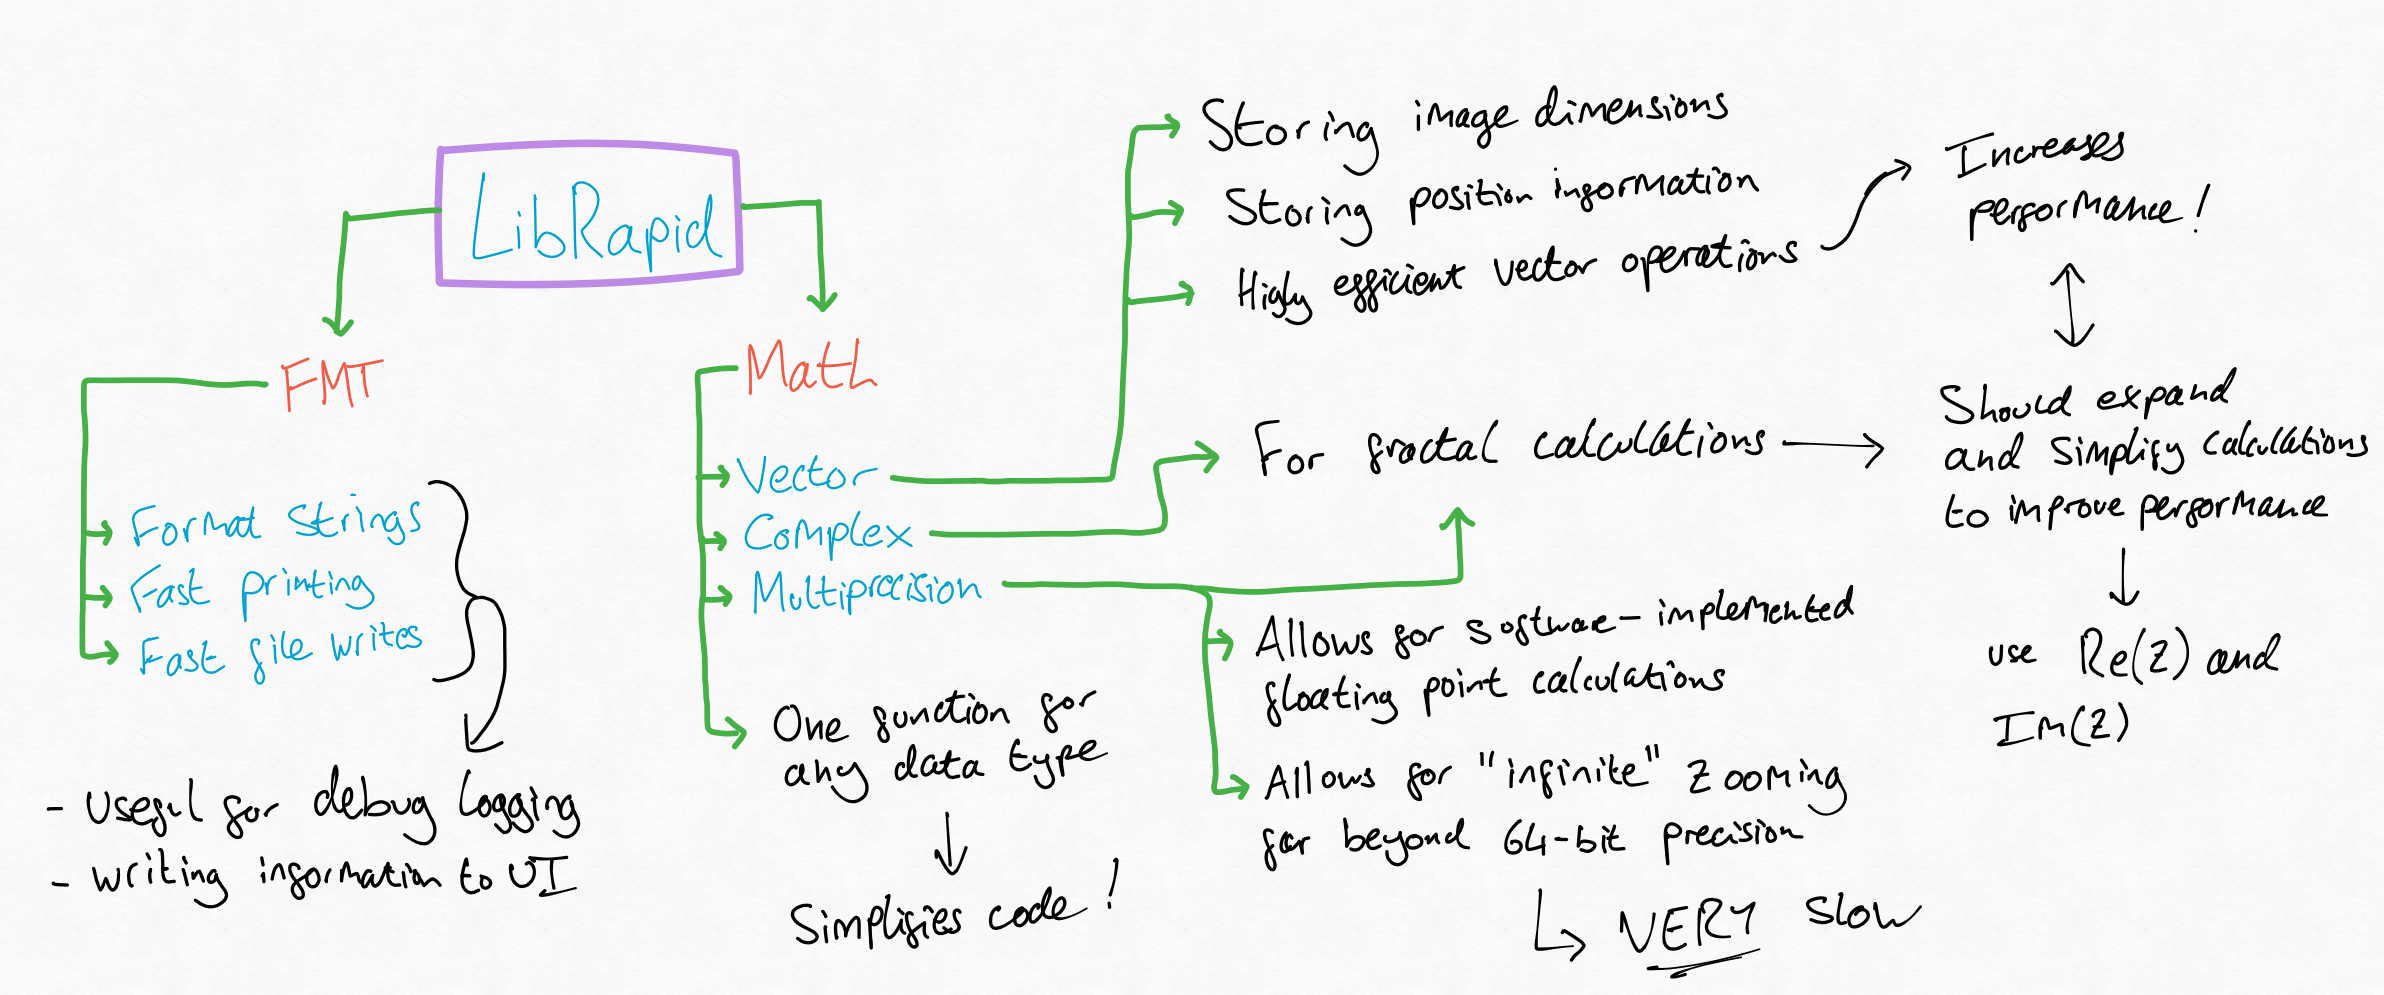 LibRapid
FMT
Format Strings
Fast printing
Fast file writes
- Useful for debug logging
- writing information to UI
Math
Vector
Complex
Multiprecision
One function for
any data type
Simplifies code!
Storing image dimensions
Storing position information
Higly efficient vector operations
Increases
performance!
For fractal calculations
Should expand
and simplify calculations
to improve performance
use Re(z) and
Im(z)
Allows for software-implemented
floating point calculations
Allows for "infinite" zooming
far beyond 64-bit precision
VERY slow